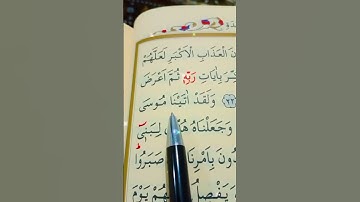 نَ الْعَذَابِ الْاَكْبَرِ لَعَلَّهُمْ
بِاٰيَاتِ رَبِّهٖ ثُمَّ اَعْرَضَ
﴿٢٢﴾ وَلَقَدْ اٰتَيْنَا مُوسَى
وَجَعَلْنَاهُ هُدًى لِبَنٖٓى
دُونَ بِاَمْرِنَا صَبَرُوا
يَفْصِلُ هُمْ يَوْمَ